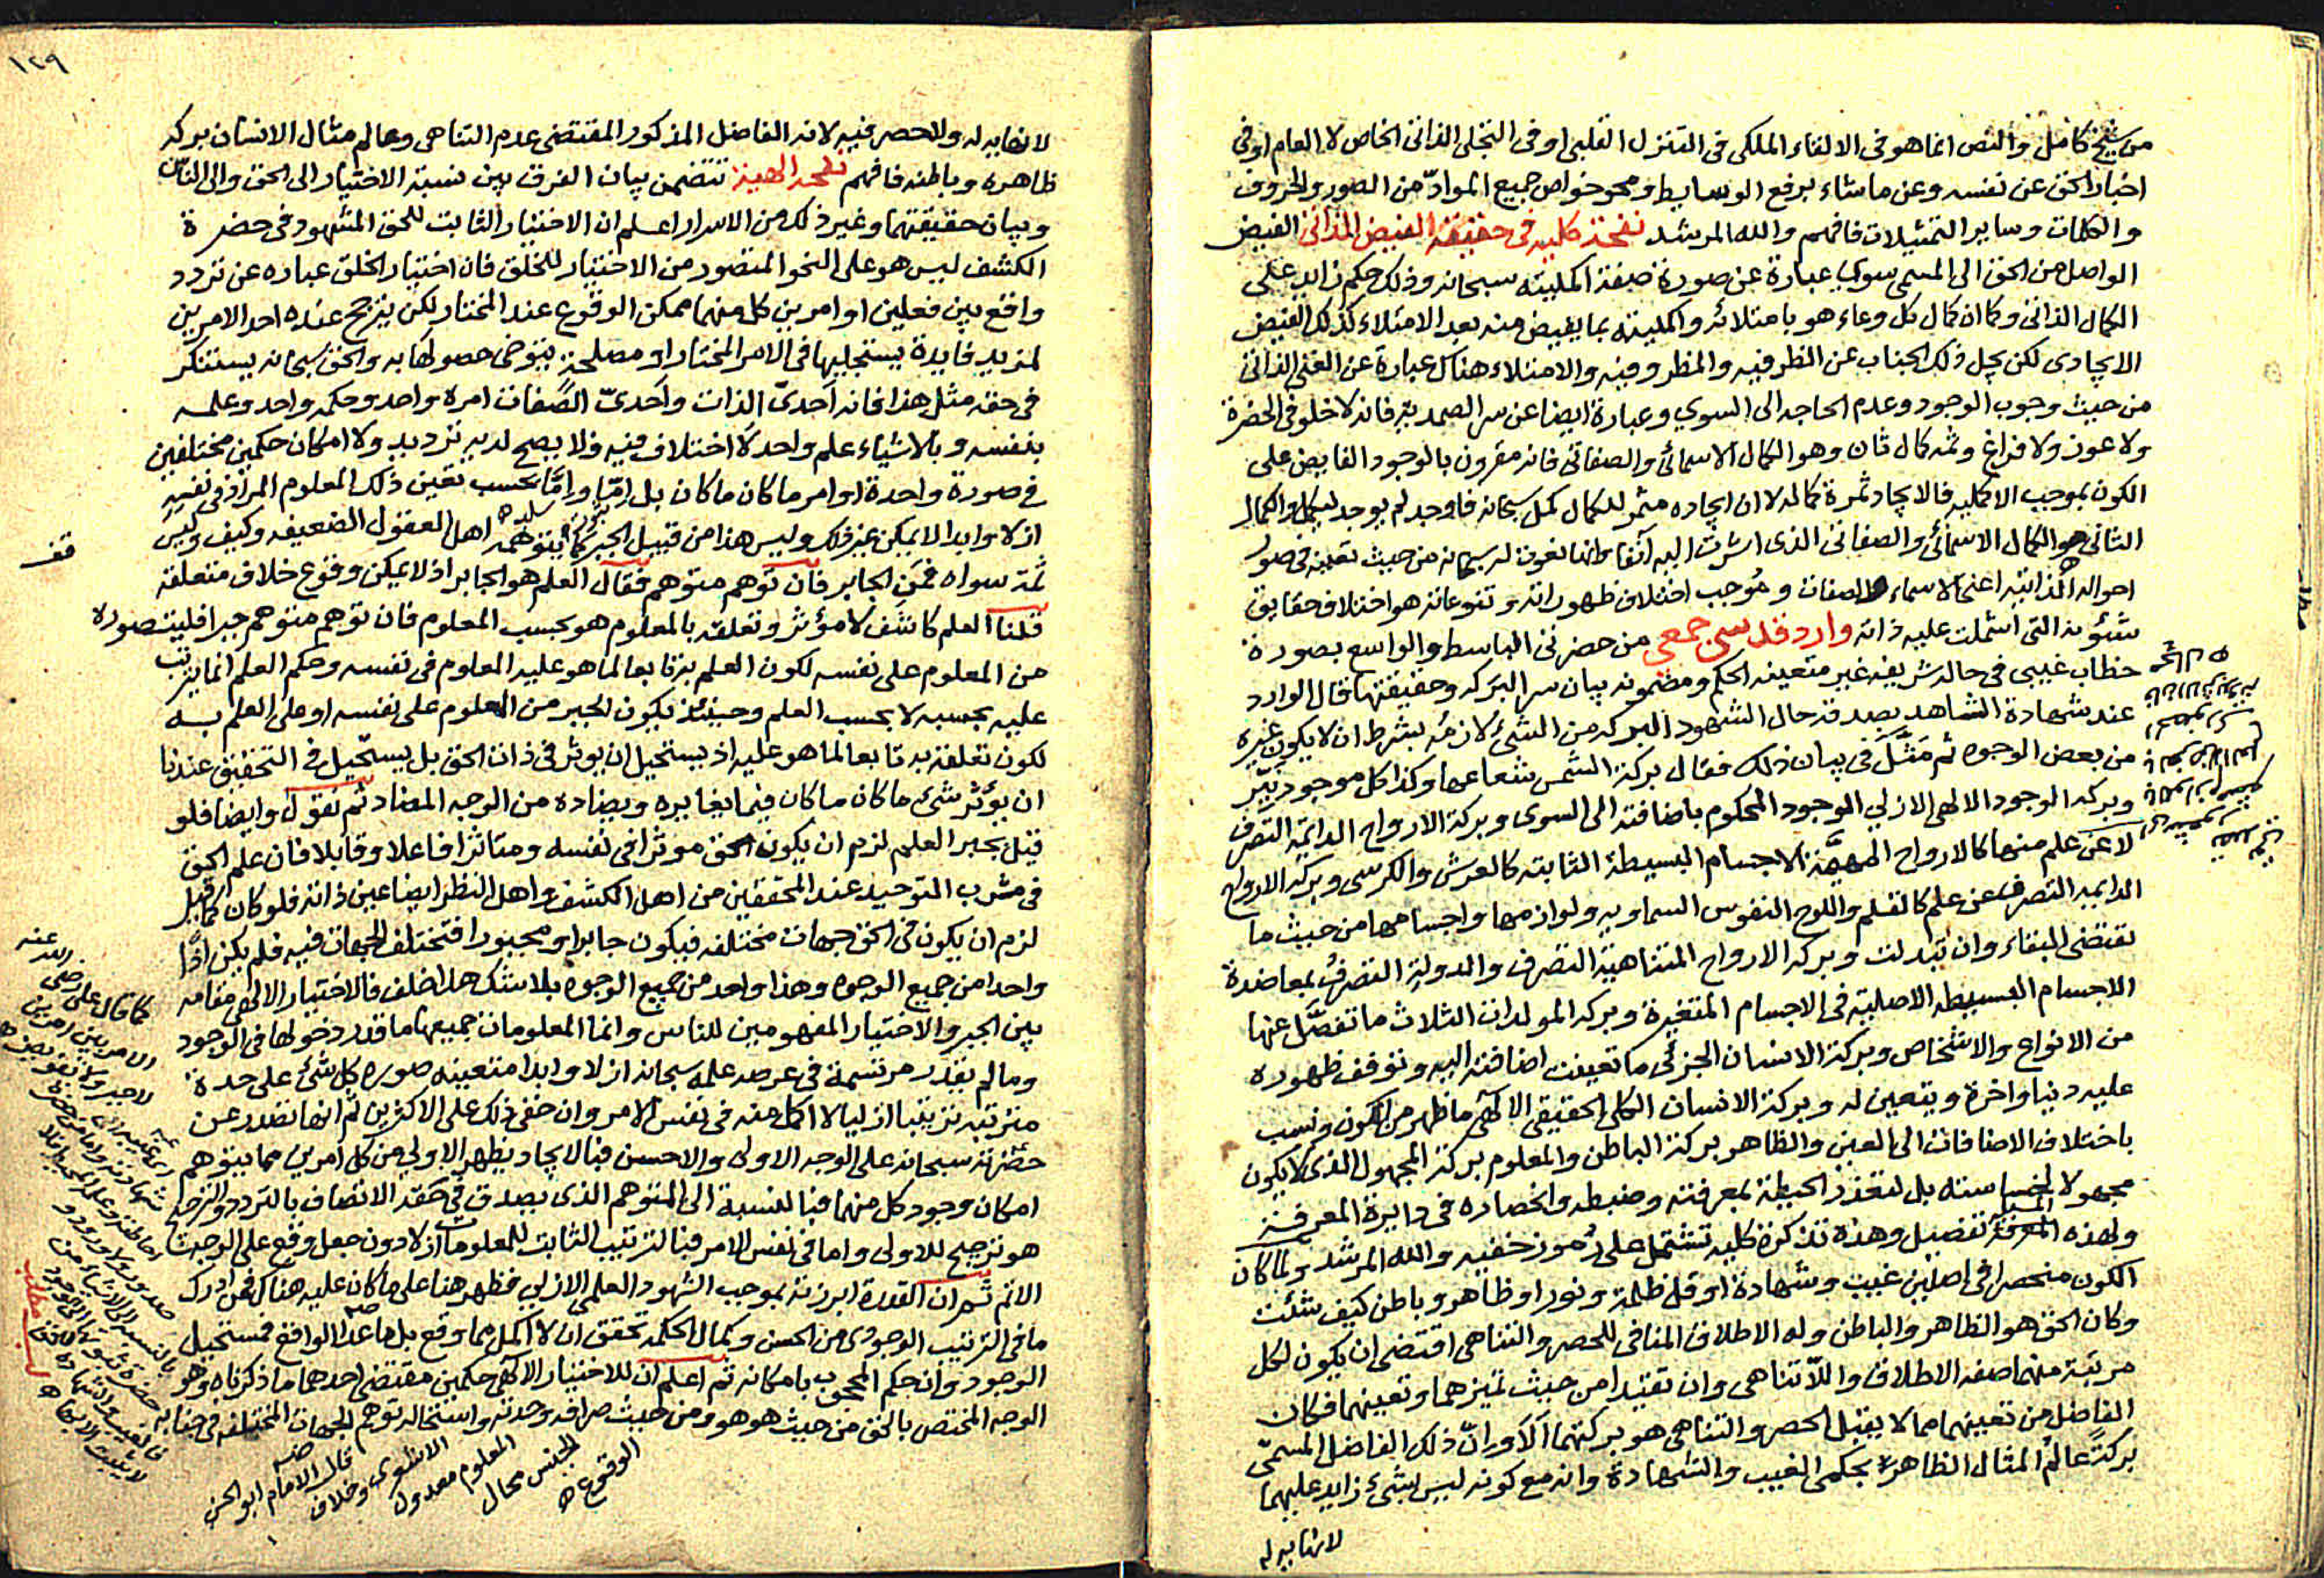 من شيخ كامل والنص انما هو فى الالقاء الملكى فى التنزل القلبى او فى التجلى الذاتى الخاص لا العام او فى
اخبار الحق عن نفسه وعن ما شاء برفع الوسايط ومحو خواص جميع المواد من الصور والحروف
والكلمات وساير التمثيلات فافهم والله المرشد نفحة كلية فى حقيقة الفيض الذاتى الفيض
الواصل من الحق الى المسمى سوى عبارة عن صورة صفة اكملية سبحانه وذلك حكم زايد على
الكمال الذاتى وكما ان كمال كل وعاء هو بامتلائه واكمليته بما يفيض منه بعد الامتلاء كذلك الفيض
الايجادى لكن يجل ذلك الجناب عن الظرفيه والمظروفيه والامتلاء هناك عبارة عن الغنى الذاتى
من حيث وجوب الوجود وعدم الحاجه الى السوى وعبارة ايضا عن سر الصمدية فانه لا خلو فى الحضرة
ولا عون ولا فراغ وثمه كمال ثان وهو الكمال الاسمائى والصفاتى فانه مقرون بالوجود الفايض على
الكون بموجب الاكمليه فالايجاد ثمرة كماله لا ان ايجاده مثمر للكمال كمل سبحانه فاوجد لم يوجد ليكمل والكمال
الثانى هو الكمال الاسمائى والصفاتى الذى اشرت اليه آنفا وانما نعوت له سبحانه من حيث تعينه فى صور
احواله الذاتيه اعنى الاسماء والصفات وموجب اختلاف ظهوراته وتنوعاته هو اختلاف حقايق
شئونه التى اشتملت عليه ذاته وارد قدسى جمعى من حضرتى الباسط والواسع بصورة
خطاب غيبى فى حالة شريفه غير متعينه الحكم ومضمونه بيان سر البركه وحقيقتها قال الوارد
عند شهادة الشاهد بصدقه حال الشهود البركه من الشئ لازمه بشرط ان لا يكون غيره
من بعض الوجوه ثم مثل فى بيان ذلك فقال بركة الشمس شعاعها وكذا كل موجود نير
وبركه الوجود الالهى الازلى الوجود المحكوم باضافته الى السوى وبركة الارواح الدايمة التصرف
لا عن علم منها كالارواح المهيمة الاجسام البسيطة الثابته كالعرش والكرسى وبركه الارواح
الدايمه التصرف عن علم كالقلم واللوح النفوس السماويه ولوازمها واجسامها من حيث ما
تقتضى البقاء وان تبدلت وبركه الارواح المتناهية التصرف والدولة التصرف بمعاضدة
الاجسام البسيطه الاصلية فى الاجسام المتغيرة وبركه المولدات الثلاث ما تفصل عنها
من الانواع والاشخاص وبركة الانسان الجزئى ما تعينت اضافته اليه وتوقف ظهوره
عليه دنيا واخرة ويتعين له وبركة الانسان الكلى الحقيقى الالهى ما ظهر من الكون ونسب
باختلاف الاضافات الى العين والظاهر بركة الباطن والمعلوم بركة المجهول الذى لا يكون
مجهولا لخساسته بل لتعذر الحيطة بمعرفته وضبطه وانحصاره فى دايرة المعرفه
ولهذه المعرفة تفصيل وهذه تذكرة كلية تشتمل على رموز خفيه والله المرشد ولما كان
الكون منحصرا فى اصلين غيب وشهادة او قل ظلمة ونور او ظاهر وباطن كيف شئت
وكان الحق هو الظاهر والباطن وله الاطلاق المنافى للحصر والتناهى اقتضى ان يكون لكل
مرتبة منهما صفه الاطلاق واللاتناهى وان تقيدا من حيث تميزهما وتعينهما فكان
الفاضل من تعينهما مما لا يقبل الحصر والتناهى هو بركتهما الا وان ذلك الفاضل المسمى
بركة عالم المثال الظاهر بحكمى الغيب والشهادة وانه مع كونه ليس بشئ زايد عليهما
لا نهايه له
١٢٩
لا نهايه له ولا حصر فيه لانه الفاضل المذكور المقتضى عدم التناهى وعالم مثال الانسان بركه
ظاهره وباطنه فافهم نفحه الهية تتضمن بيان الفرق بين نسبة الاختيار الى الحق والى الناس
وبيان حقيقتهما وغير ذلك من الاسرار اعلم ان الاختيار الثابت للحق المشهود فى حضرة
الكشف ليس هو على النحو المتصور من الاختيار للخلق فان اختيار الخلق عباره عن تردد
واقع بين فعلين او امرين كل منهما ممكن الوقوع عند المختار لكن يترجح عنده احد الامرين
لمزيد فايدة يستجليها فى الامر المختار او مصلحة يتوخى حصولها به والحق سبحانه يستنكر
فى حقه مثل هذا فانه احدى الذات واحدى الصفات امره واحد وحكمه واحد وعلمه
بنفسه وبالاشياء علم واحد لا اختلاف فيه ولا يصح لديه ترديد ولا امكان حكمين مختلفين
فى صورة واحدة او امر ما كان ما كان بل اما واما بحسب تعين ذلك المعلوم المراد فى نفسه
ازلا وابدا لا يمكن غير ذلك وليس هذا من قبيل الجبر كما يتوهمه اهل العقول الضعيفه وكيف وليس
قف
ثمة سواه فمن الجابر فان توهم متوهم فقال العلم هو الجابر اذ لا يمكن وقوع خلاف متعلقه
قلنا العلم كاشف لا مؤثر وتعلقه بالمعلوم هو بحسب المعلوم فان توهم متوهم جبرا فليتصوره
من المعلوم على نفسه لكون العلم تابعا لما هو عليه المعلوم فى نفسه وحكم العلم انما يترتب
عليه بحسبه لا بحسب العلم وحينئذ يكون الجبر من المعلوم على نفسه او على العلم به
لكون تعلقه به تابعا لما هو عليه اذ يستحيل ان يوثر فى ذات الحق بل يستحيل فى التحقيق عندنا
ان يؤثر شئ ما كان ما كان فيما يغايره ويضاده من الوجه المضاد ثم نقول وايضا فلو
قيل بجبر العلم لزم ان يكون الحق موثرا فى نفسه ومتاثرا فاعلا وقابلا فان علم الحق
فى مشرب التوحيد عند المحققين من اهل الكشف واهل النظر ايضا عين ذاته فلو كان كما قيل
لزم ان يكون فى الحق جهات مختلفه فيكون جابرا ومجبورا فتختلف الجهات فيه فلم يكن اذا
واحدا من جميع الوجوه وهذا واحد من جميع الوجوه بلا شك هذا خلف فالاختيار الالهى مقامه
بين الجبر والاختيار المفهومين للناس وانما المعلومات جميعها ما قدر دخولها فى الوجود
وما لم يقدر مرتسمة فى عرصه علمه سبحانه ازلا وابدا متعينه صوره كل شئ على حدة
مترتبه ترتيبا ازليا لا اكمل منه فى نفس الامر وان خفى ذلك على الاكثرين ثم انها تصدر عن
حضرته سبحانه على الوجه الاولى والاحسن فبالايجاد يظهر الاولى من كل امرين مما يتوهم
امكان وجود كل منهما فبالنسبة الى المتوهم الذى يصدق فى حقه الاتصاف بالتردد والترجيح
هو ترجيح للاولى واما فى نفس الامر فبالترتيب الثابت للمعلومات ازلا دون جعل وقع على الوجه
الاتم ثم ان القدرة ابرزته بموجب الشهود العلمى الازلى فظهر هنا على ما كان عليه هناك فمن ادرك
ما فى الترتيب الوجودى من الحسن وكمال الحكمه تحقق ان لا اكمل مما وقع بل ما عدا الواقع فمستحيل
الوجود وان حكم المحجوب بامكانه ثم اعلم ان للاختيار الالهى حكمين مقتضى احدهما ما ذكرناه وهو
الوجه المختص بالحق من حيث هو هو ومن حيث صرافه وحدته واستحاله توهم الجهات المختلفه فى جنابه
كما قال على رضى الله عنه
قال الامام ابو الحسن
الوقوع